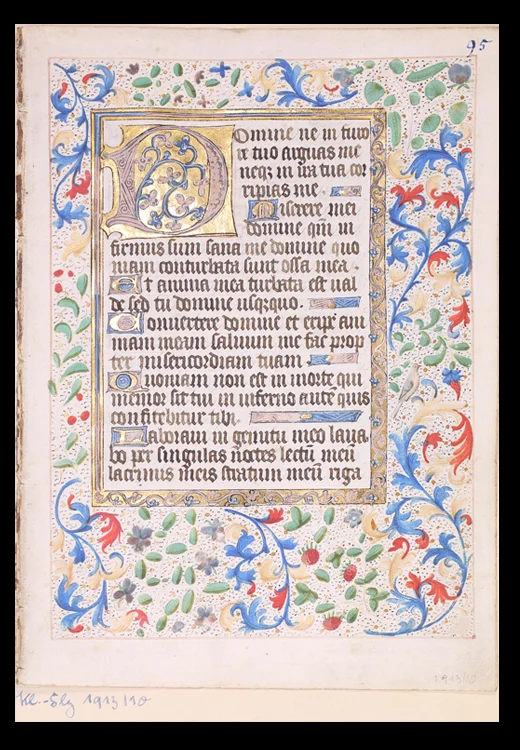 95
Domine ne in furo
re tuo arguas me
neqz in ira tua cor
ripias me
Miserere mei
domine qm in
firmus sum sana me domine quo
niam conturbata sunt ossa mea.
Et anima mea turbata est ual
de sed tu domine usqzquo.
Conuertere domine et eripe ani
mam meam saluum me fac prop
ter misericordiam tuam.
Quoniam non est in morte qui
memor sit tui in inferno auté quis
confitebitur tibi.
Laboraui in gemitu meo laua
bo per singulas noctes lectū meū
lacrimis meis stratum meū riga
1913/10
Kl.-Slg 1913/10